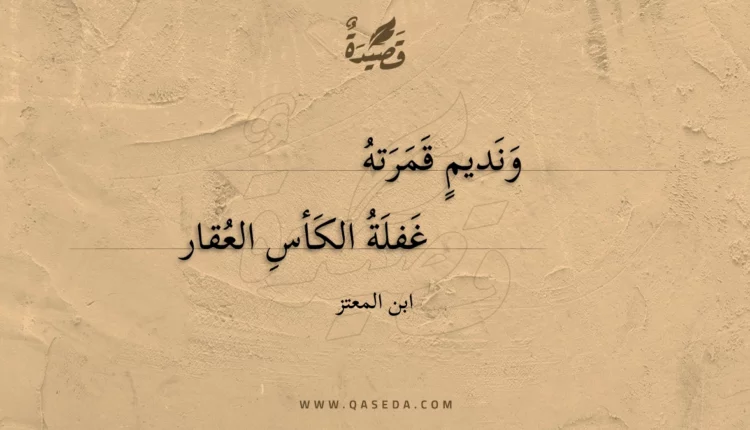 قَصِيدَةٌ
وَنَديمٍ قَمَرَتهُ
غَفلَةُ الكَأسِ العُقار
ابن المعتز
WWW.QASEDA.COM